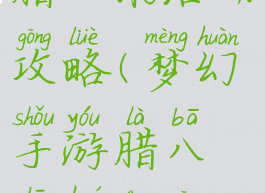 gōng lüè mèng huàn
攻略(梦幻
shǒu yóu là bā
手游腊八